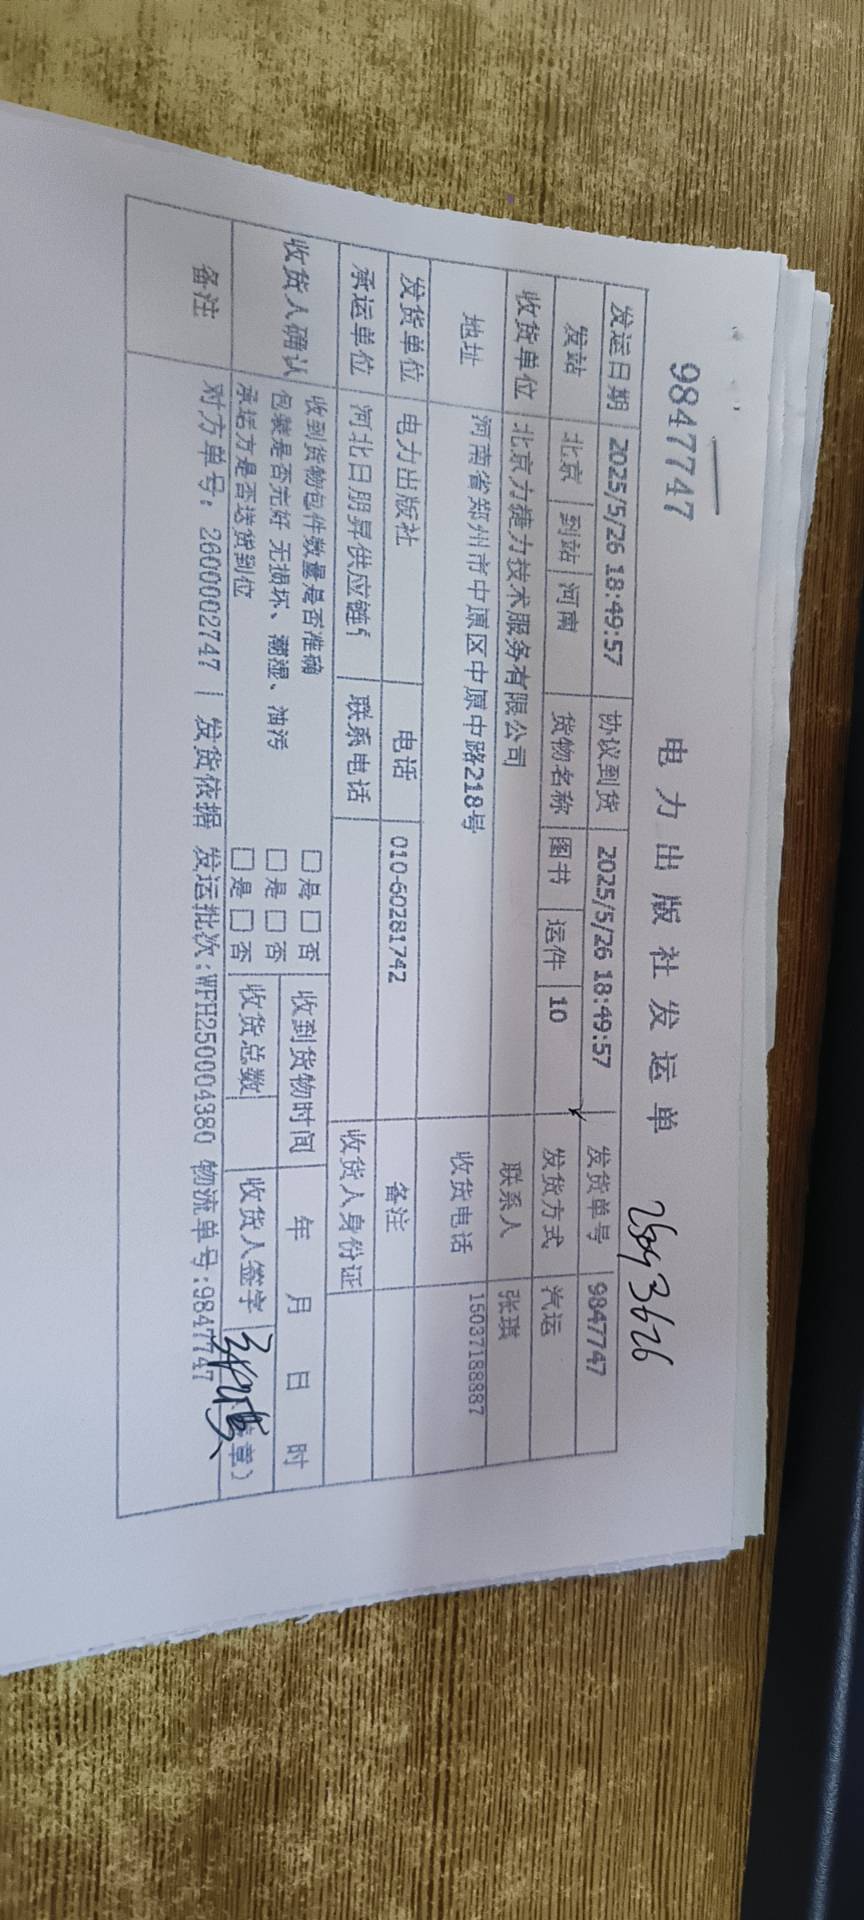 9847747
电力出版社发运单
发运日期 2025/5/26 18:49:57 协议到货 2025/5/26 18:49:57 发货单号 9847747
发站 北京 到站 河南 货物名称 图书 运件 10 发货方式 汽运
收货单位 北京力捷力技术服务有限公司 联系人 张琪
地址 河南省郑州市中原区中原中路218号 收货电话 15037188887
发货单位 电力出版社 电话 010-60281742 备注
承运单位 河北日朋昇供应链 联系电话 收货人身份证
收货人确认 收到货物包件数量是否准确 □是□否 收到货物时间 年 月 日 时
包装是否完好 无损坏、潮湿、油污 □是□否
承运方是否送货到位 □是□否 收货总数 收货人签字 章)
备注 对方单号: 2600002747 | 发货依据 发运批次:WFH250004380 物流单号:9847747